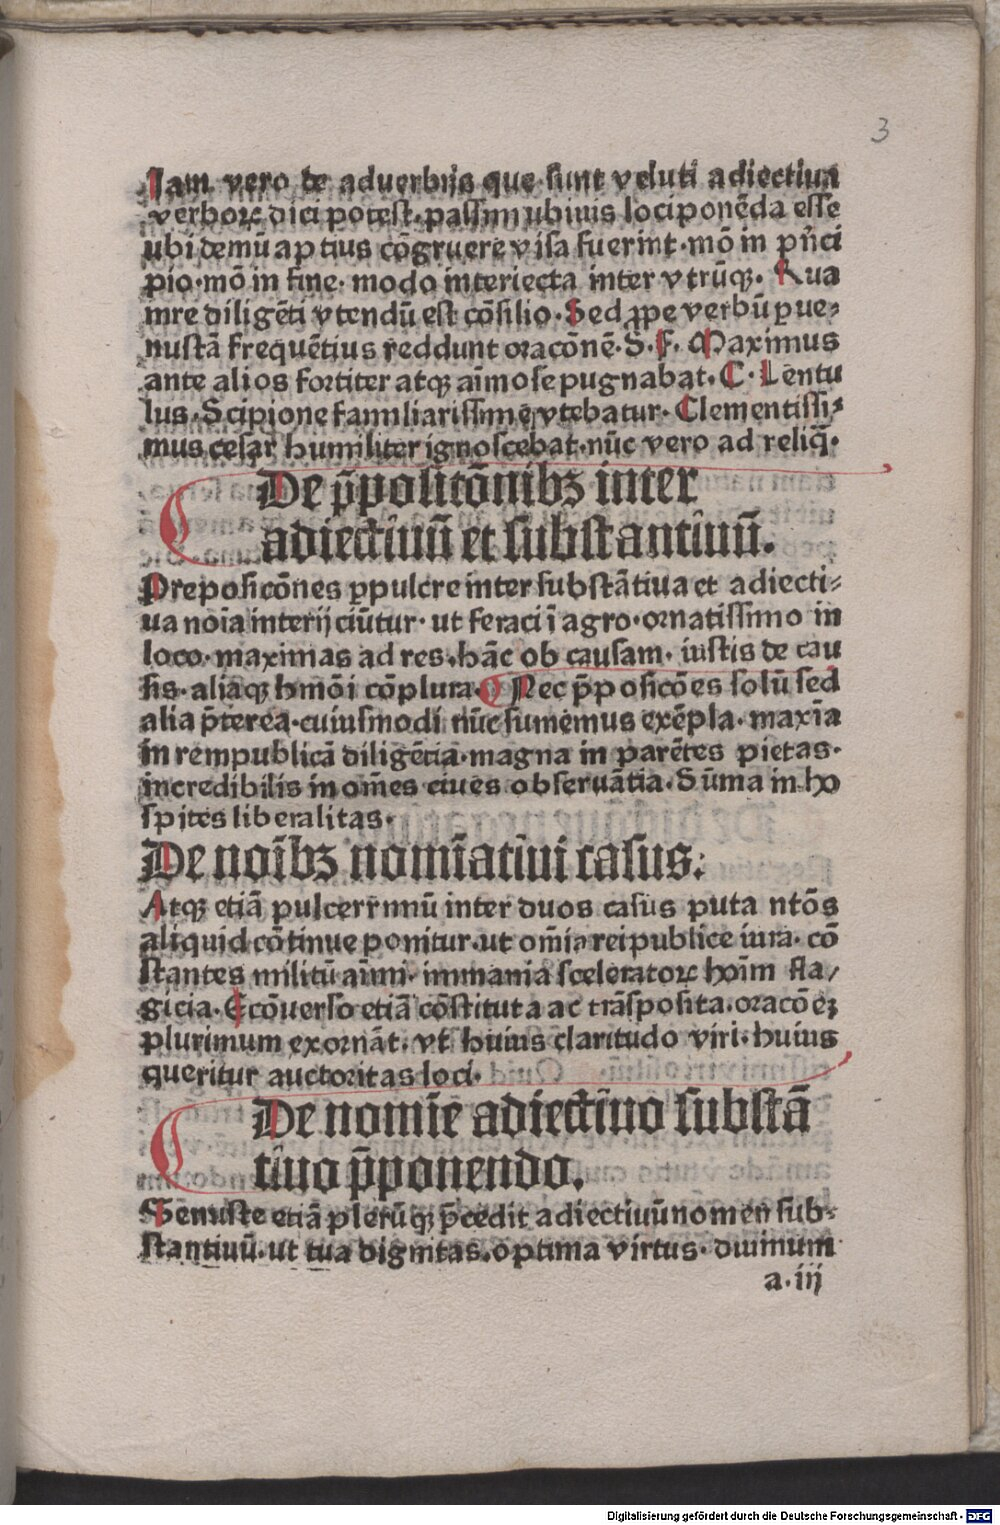 3
Jam vero de aduerbijs que sunt veluti adiectiua
verboꝝ dici potest· passim ubiuis loci ponēda esse
ubi demū aptius cōgruere visa fuerint· mō in prīci
pio· mō in fine· modo interiecta inter vtrūqꝫ· Qua
mre diligēti vtendū est cōsilio· Sed ꝓpe verbū ꝑue-
nustā frequētius reddunt oracōnē· S· f· Maximus
ante alios fortiter atqꝫ aīmose pugnabat· C· Lentu
lus· Scipione familiarissime vtebatur· Clementissi-
mus cesar humiliter ignoscebat· nūc vero ad reliq̄·
De p̄positōnibꝫ inter
adiectiuū et substantiuū.
Preposicōnes ꝑpulcre inter substātiua et adiecti-
ua noīa interijciūtur· ut feraci ī agro· ornatissimo in
loco· maximas ad res· hāc ob causam· iustis de cau
sis· aliaqꝫ hmōi cōplura· Nec p̄posicōes solū sed
alia p̄terea· cuiusmodi nūc sumemus exēpla· maxīa
in rempublicā diligētia· magna in parētes pietas·
incredibilis in om̄es ciues obseruātia· Sūma in ho
spites liberalitas·
De noībꝫ nomīatiui casus:
Atqꝫ etiā pulcerrimū inter duos casus puta ntōs
aliquid cōtinue ponitur· ut om̄ia reipublice iura· cō
stantes militū aīmi· immania sceleratoꝝ hoīm fla/
gicia· Ecōuerso etiā cōstituta ac trāsposita· oracōeꝫ
plurimum exornāt· vt huius claritudo viri· huius
queritur auctoritas loci·
De nomīe adiectiuo substā
tiuo p̄ponendo.
Venuste etiā plerūqꝫ p̄cedit adiectiuū nomen sub-
stantiuū· ut tua dignitas· optima virtus· diuinum
a·iij
Digitalisierung gefördert durch die Deutsche Forschungsgemeinschaft - DFG